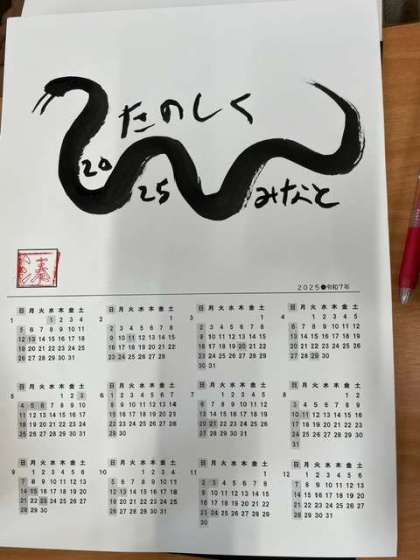 たのしく
20
25
みなと
2025●令和7年
1
日 月 火 水 木 金 土
1 2 3 4
5 6 7 8 9 10 11
12 13 14 15 16 17 18
19 20 21 22 23 24 25
26 27 28 29 30 31
2
日 月 火 水 木 金 土
1
2 3 4 5 6 7 8
9 10 11 12 13 14 15
16 17 18 19 20 21 22
23 24 25 26 27 28
3
日 月 火 水 木 金 土
1
2 3 4 5 6 7 8
9 10 11 12 13 14 15
16 17 18 19 20 21 22
23 24 25 26 27 28 29
30 31
4
日 月 火 水 木 金 土
1 2 3 4 5
6 7 8 9 10 11 12
13 14 15 16 17 18 19
20 21 22 23 24 25 26
27 28 29 30
5
日 月 火 水 木 金 土
1 2 3
4 5 6 7 8 9 10
11 12 13 14 15 16 17
18 19 20 21 22 23 24
25 26 27 28 29 30 31
6
日 月 火 水 木 金 土
1 2 3 4 5 6 7
8 9 10 11 12 13 14
15 16 17 18 19 20 21
22 23 24 25 26 27 28
29 30
7
日 月 火 水 木 金 土
1 2 3 4 5
6 7 8 9 10 11 12
13 14 15 16 17 18 19
20 21 22 23 24 25 26
27 28 29 30 31
8
日 月 火 水 木 金 土
1 2
3 4 5 6 7 8 9
10 11 12 13 14 15 16
17 18 19 20 21 22 23
24 25 26 27 28 29 30
31
9
日 月 火 水 木 金 土
1 2 3 4 5 6
7 8 9 10 11 12 13
14 15 16 17 18 19 20
21 22 23 24 25 26 27
28 29 30
10
日 月 火 水 木 金 土
1 2 3 4
5 6 7 8 9 10 11
12 13 14 15 16 17 18
19 20 21 22 23 24 25
26 27 28 29 30 31
11
日 月 火 水 木 金 土
1
2 3 4 5 6 7 8
9 10 11 12 13 14 15
16 17 18 19 20 21 22
23 24 25 26 27 28 29
30
12
日 月 火 水 木 金 土
1 2 3 4 5 6
7 8 9 10 11 12 13
14 15 16 17 18 19 20
21 22 23 24 25 26 27
28 29 30 31